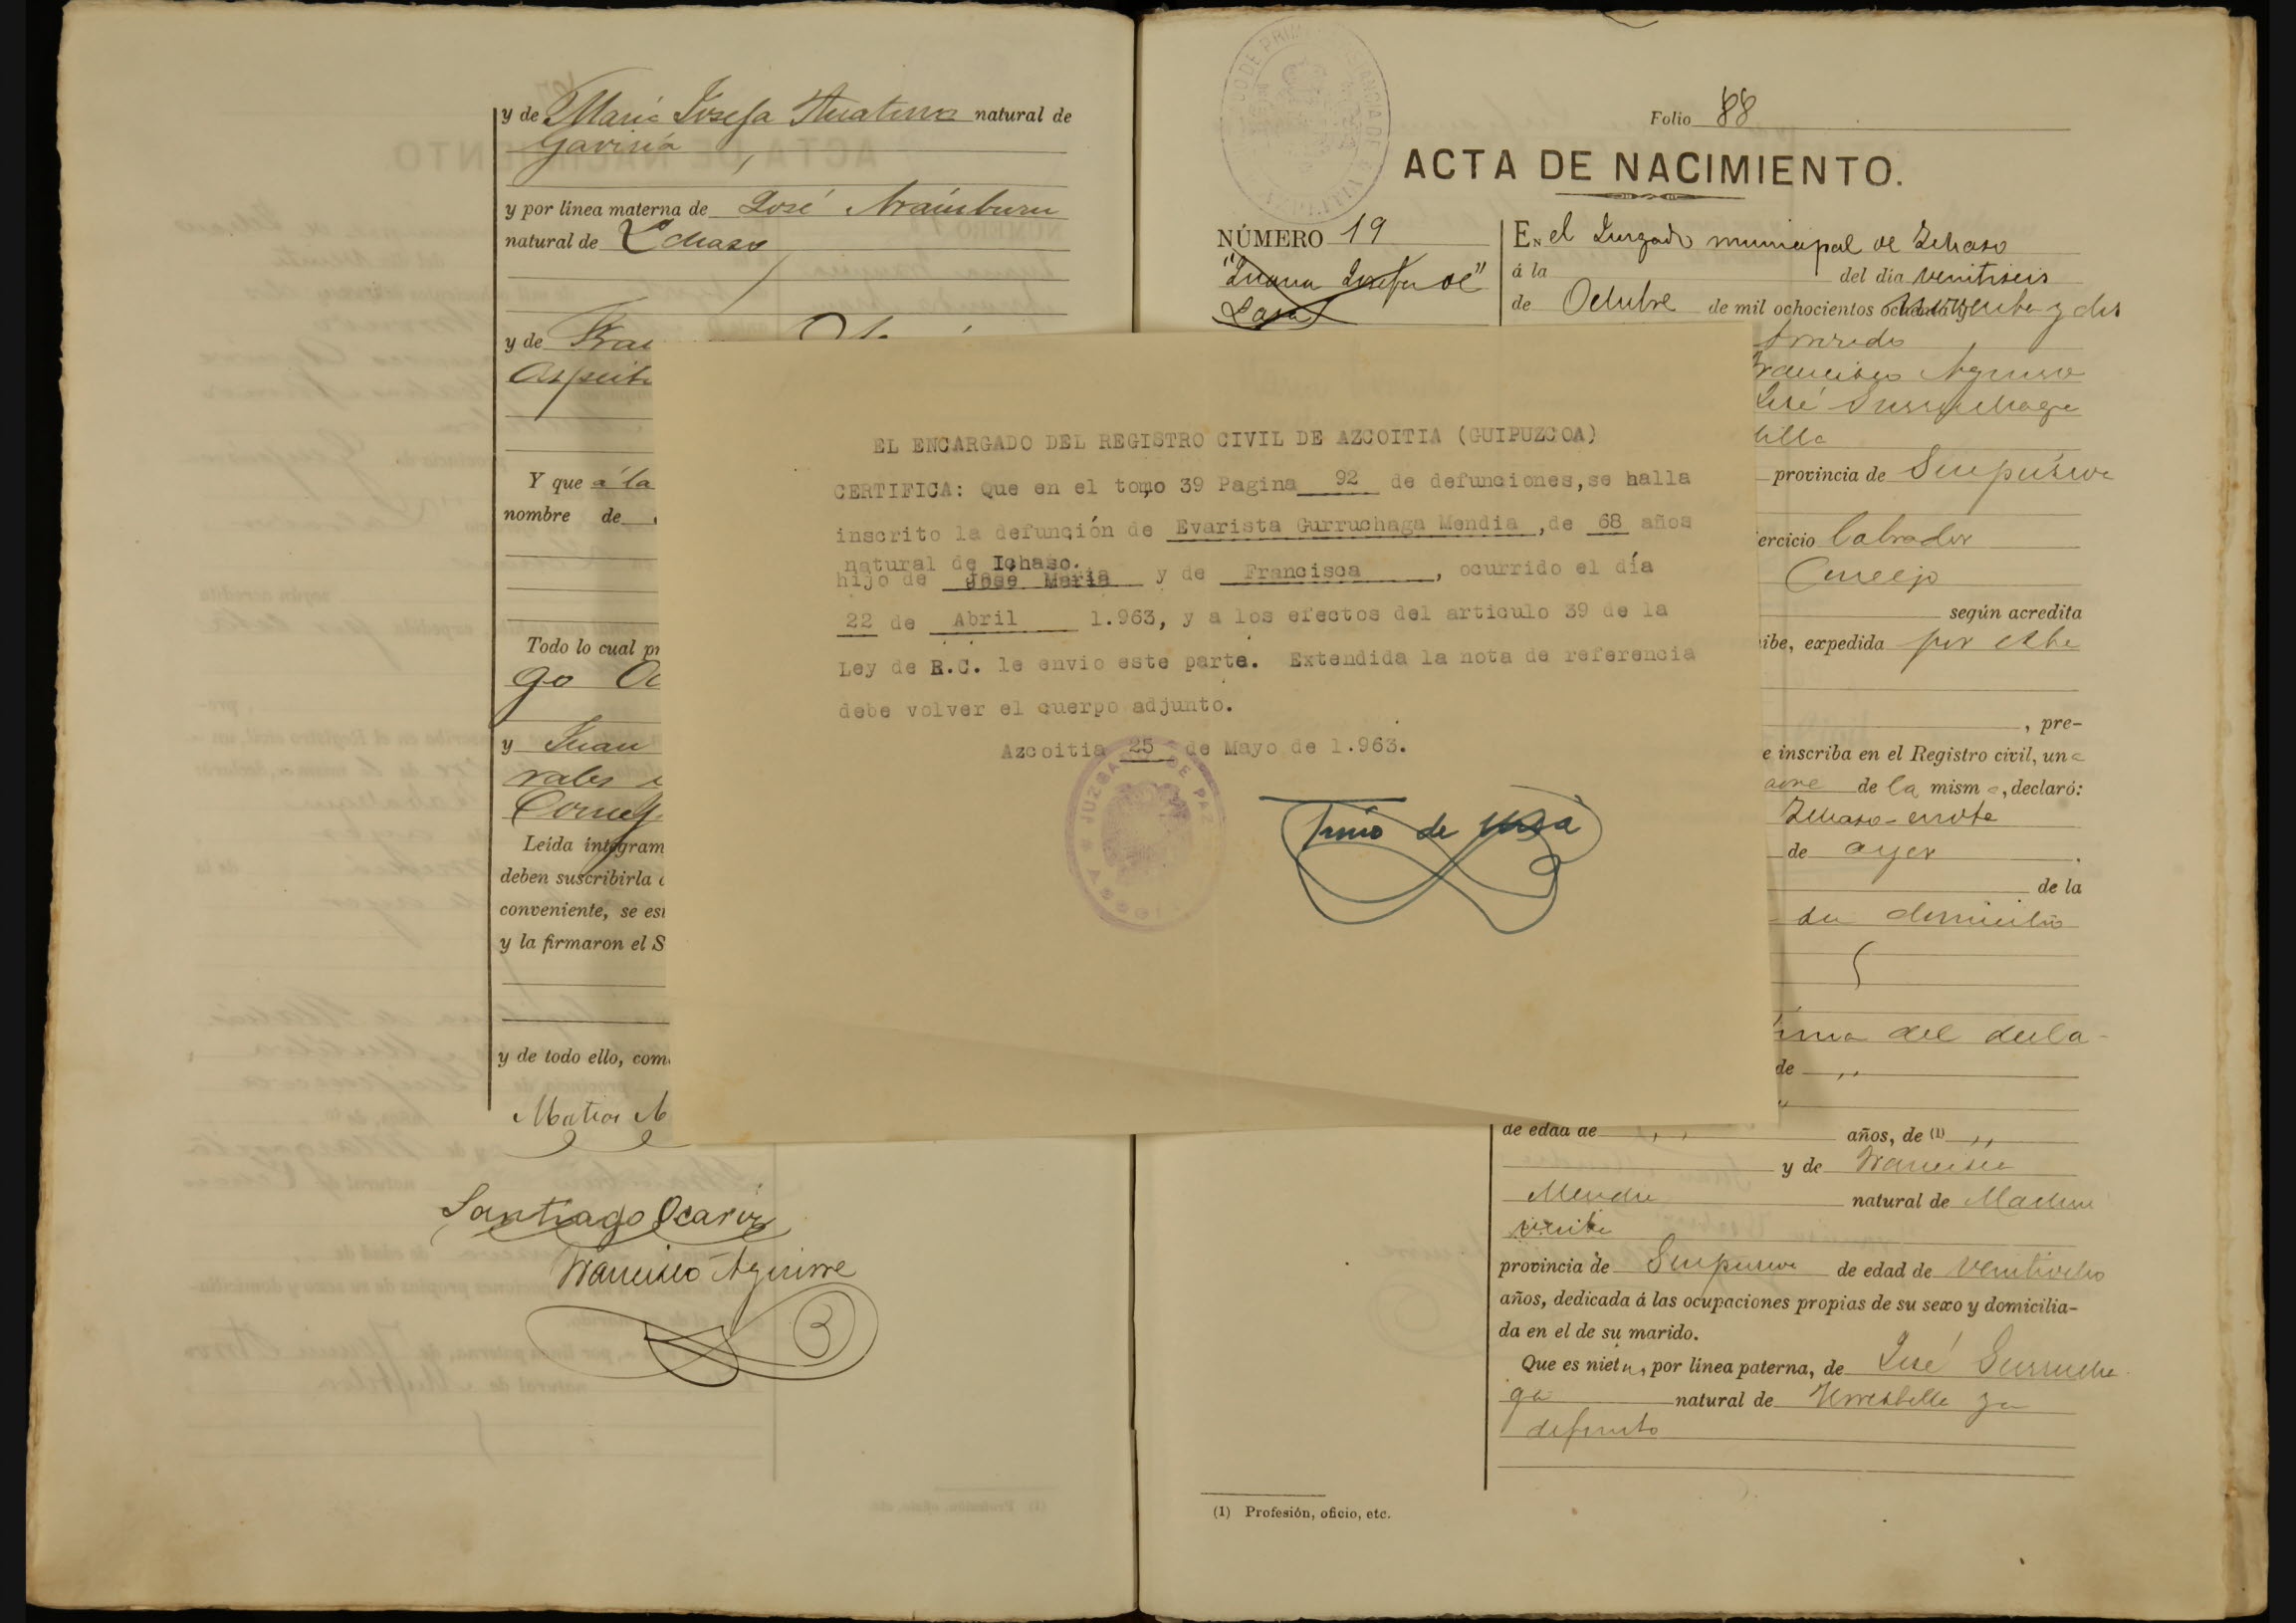 y de María Josefa natural de
Gaviria
y por línea materna de José Aramburu
natural de Ichaso
y de Fran
Aspeit
Y que á la
nombre de
Todo lo cual pr
go Oc
y Juan
rales
Leída íntegram
deben suscribirla
conveniente, se es
y la firmaron el S
y de todo ello, com
Matias
Santiago Ocariz
Francisco Aguirre
EL ENCARGADO DEL REGISTRO CIVIL DE AZCOITIA (GUIPUZCOA)
CERTIFICA: Que en el tomo 39 Pagina 92 de defunciones,se halla
inscrito la defunción de Evarista Gurruchaga Mendia ,de 68 años
natural de Ichaso.
hijo de José María y de Francisca , ocurrido el día
22 de Abril 1.963, y a los efectos del articulo 39 de la
Ley de R.C. le envio este parte. Extendida la nota de referencia
debe volver el cuerpo adjunto.
Azcoitia 25 de Mayo de 1.963.
JUZGA DE PAZ
Folio 88
ACTA DE NACIMIENTO.
NÚMERO 19
"Juana Josefa de"
Lasa
EN el Juzgado municipal de Ichaso
á la del día veintiseis
de Octubre de mil ochocientos noventa y dos
Francisco Aguirre
José Gurruchaga
tilla
provincia de Guipúzcoa
ercicio labrador
Concejo
según acredita
ibe, expedida por este
, pre-
e inscriba en el Registro civil, una
de la misma, declaró:
Ichaso-errota
de ayer
de la
su domicilio
del decla-
de ,,
de edad de ,, años, de (1) ,,
y de Francisca
Mendia natural de
provincia de Guipúzcoa de edad de veintiocho
años, dedicada á las ocupaciones propias de su sexo y domicilia-
da en el de su marido.
Que es nieta, por línea paterna, de José Gurrucha-
ga natural de Urrestilla ya
difunto
(1) Profesión, oficio, etc.